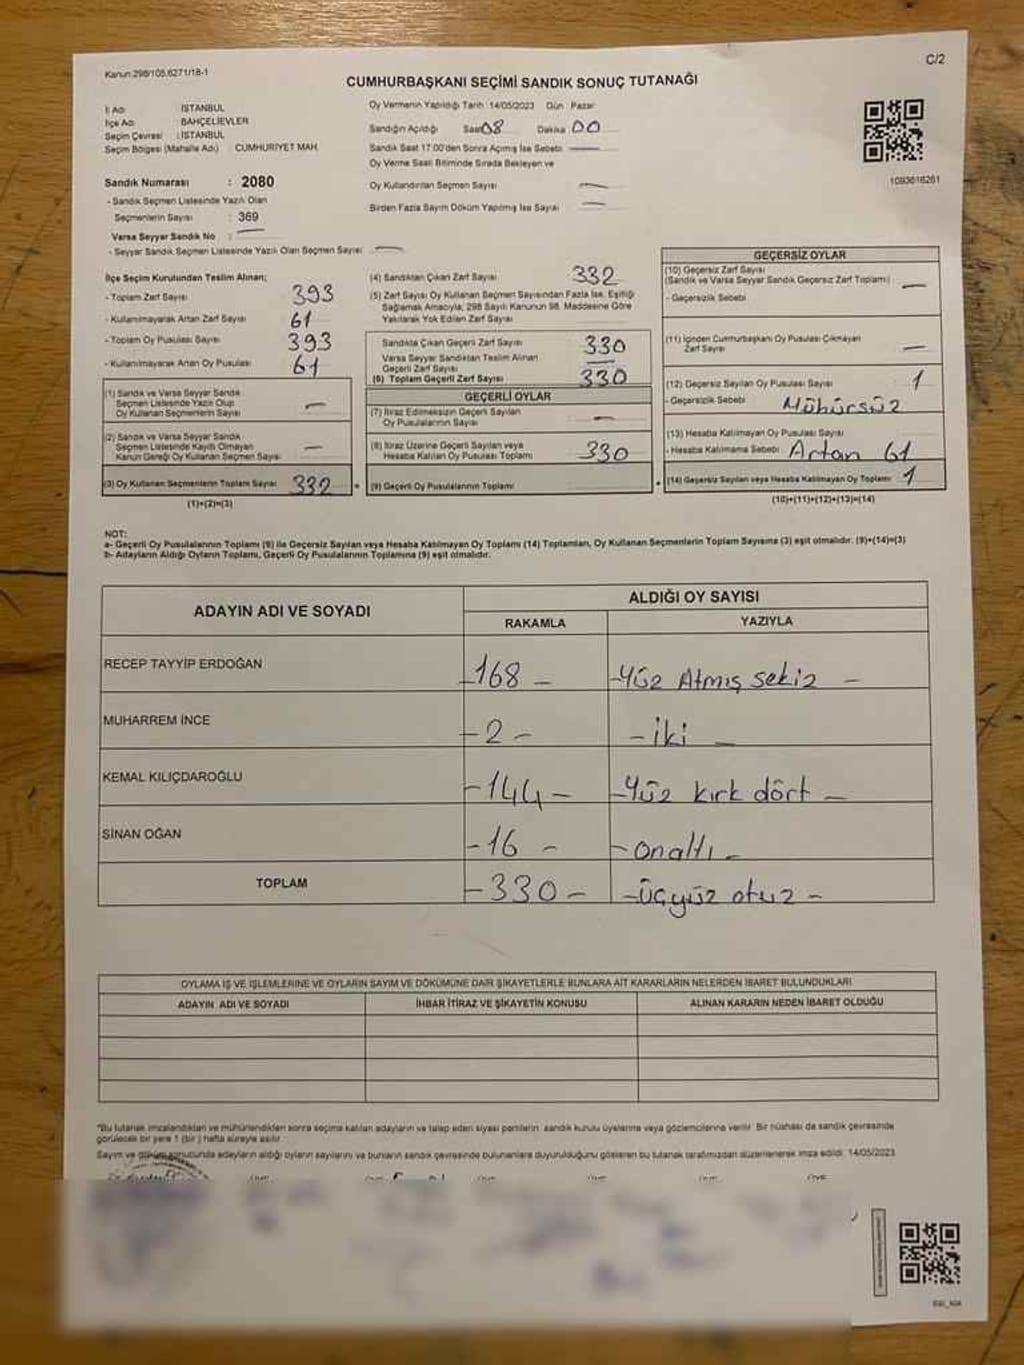 Kanun:298/105,6271/18-1
C/2
CUMHURBAŞKANI SEÇİMİ SANDIK SONUÇ TUTANAĞI
İl Adı : İSTANBUL
İlçe Adı : BAHÇELİEVLER
Seçim Çevresi : İSTANBUL
Seçim Bölgesi (Mahalle Adı) CUMHURİYET MAH.
Oy Vermenin Yapıldığı Tarih :14/05/2023 Gün : Pazar
Sandığın Açıldığı Saat 08 Dakika 00
Sandık Saat 17:00'den Sonra Açımış İse Sebebi
Oy Verme Saati Bitiminde Sırada Bekleyen ve
Oy Kullandırılan Seçmen Sayısı
Birden Fazla Sayım Döküm Yapılmış İse Sayısı
1093616261
Sandık Numarası : 2080
- Sandık Seçmen Listesinde Yazılı Olan
Seçmenlerin Sayısı : 369
Varsa Seyyar Sandık No :
- Seyyar Sandık Seçmen Listesinde Yazılı Olan Seçmen Sayısı
İlçe Seçim Kurulundan Teslim Alınan;
- Toplam Zarf Sayısı 393
- Kullanılmayarak Artan Zarf Sayısı 61
- Toplam Oy Pusulası Sayısı 393
- Kullanılmayarak Artan Oy Pusulası 61
(1) Sandık ve Varsa Seyyar Sandık
Seçmen Listesinde Yazılı Olup
Oy Kullanan Seçmenlerin Sayısı –
(2) Sandık ve Varsa Seyyar Sandık
Seçmen Listesinde Kayıtlı Olmayan
Kanun Gereği Oy Kullanan Seçmen Sayısı –
(3) Oy Kullanan Seçmenlerin Toplam Sayısı 332
(1)+(2)=(3)
(4) Sandıktan Çıkan Zarf Sayısı 332
(5) Zarf Sayısı Oy Kullanan Seçmen Sayısından Fazla İse, Eşitliği
Sağlamak Amacıyla, 298 Sayılı Kanunun 98. Maddesine Göre
Yakılarak Yok Edilen Zarf Sayısı
Sandıkta Çıkan Geçerli Zarf Sayısı 330
Varsa Seyyar Sandıktan Teslim Alınan
Geçerli Zarf Sayısı –
(6) Toplam Geçerli Zarf Sayısı 330
GEÇERLİ OYLAR
(7) İtiraz Edilmeksizin Geçerli Sayılan
Oy Pusulasının Sayısı –
(8) İtiraz Üzerine Geçerli Sayılan veya
Hesaba Katılan Oy Pusulası Toplamı 330
(9) Geçerli Oy Pusulalarının Toplamı
GEÇERSİZ OYLAR
(10) Geçersiz Zarf Sayısı
(Sandık ve Varsa Seyyar Sandık Geçersiz Zarf Toplamı) –
- Geçersizlik Sebebi
(11) İçinden Cumhurbaşkanı Oy Pusulası Çıkmayan
Zarf Sayısı –
(12) Geçersiz Sayılan Oy Pusulası Sayısı 1
- Geçersizlik Sebebi Mühürsüz
(13) Hesaba Katılmayan Oy Pusulası Sayısı
- Hesaba Katılmama Sebebi Artan 61
(14) Geçersiz Sayılan veya Hesaba Katılmayan Oy Toplamı 1
(10)+(11)+(12)+(13)=(14)
NOT:
a- Geçerli Oy Pusulalarının Toplamı (9) ile Geçersiz Sayılan veya Hesaba Katılmayan Oy Toplamı (14) Toplamları, Oy Kullanan Seçmenlerin Toplam Sayısına (3) eşit olmalıdır. (9)+(14)=(3)
b- Adayların Aldığı Oyların Toplamı, Geçerli Oy Pusulalarının Toplamına (9) eşit olmalıdır.
ADAYIN ADI VE SOYADI
ALDIĞI OY SAYISI
RAKAMLA YAZIYLA
RECEP TAYYİP ERDOĞAN -168- -Yüz Atmış sekiz-
MUHARREM İNCE -2- -iki-
KEMAL KILIÇDAROĞLU -144- -Yüz kırk dört-
SİNAN OĞAN -16- -onaltı-
TOPLAM -330- -üçyüz otuz-
OYLAMA İŞ VE İŞLEMLERİNE VE OYLARIN SAYIM VE DÖKÜMÜNE DAİR ŞİKAYETLERLE BUNLARA AİT KARARLARIN NELERDEN İBARET BULUNDUKLARI
ADAYIN ADI VE SOYADI İHBAR İTİRAZ VE ŞİKAYETİN KONUSU ALINAN KARARIN NEDEN İBARET OLDUĞU
*Bu tutanak imzalandıktan ve mühürlendikten sonra seçime katılan adayların ve talep eden siyasi partilerin sandık kurulu üyelerine veya gözlemcilerine verilir. Bir nüshası da sandık çevresinde
görülecek bir yere 1 (bir) hafta süreyle asılır.
Sayım ve döküm sonucunda adayların aldığı oyların sayılarını ve bunların sandık çevresinde bulunanlara duyurulduğunu gösteren bu tutanak tarafımızdan düzenlenerek imza edildi. 14/05/2023